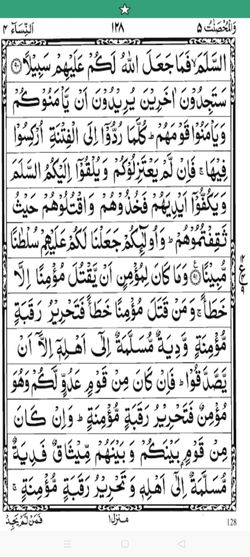 وَالْمُحْصَنٰتُ ٥ ١٢٨ اَلنِّسَآء ٤
السَّلَمَ ۙ فَمَا جَعَلَ اللّٰهُ لَكُمْ عَلَيْهِمْ سَبِيْلًا ﴿٩٠﴾
سَتَجِدُوْنَ اٰخَرِيْنَ يُرِيْدُوْنَ اَنْ يَّاْمَنُوْكُمْ
وَيَاْمَنُوْا قَوْمَهُمْ ؕ كُلَّمَا رُدُّوْۤا اِلَى الْفِتْنَةِ اُرْكِسُوْا
فِيْهَا ۚ فَاِنْ لَّمْ يَعْتَزِلُوْكُمْ وَيُلْقُوْۤا اِلَيْكُمُ السَّلَمَ
وَيَكُفُّوْۤا اَيْدِيَهُمْ فَخُذُوْهُمْ وَاقْتُلُوْهُمْ حَيْثُ
ثَقِفْتُمُوْهُمْ ؕ وَاُولٰٓئِكُمْ جَعَلْنَا لَكُمْ عَلَيْهِمْ سُلْطٰنًا
مُّبِيْنًا ﴿٩١﴾ وَمَا كَانَ لِمُؤْمِنٍ اَنْ يَّقْتُلَ مُؤْمِنًا اِلَّا
خَطَـًٔا ۚ وَمَنْ قَتَلَ مُؤْمِنًا خَطَـًٔا فَتَحْرِيْرُ رَقَبَةٍ
مُّؤْمِنَةٍ وَّدِيَةٌ مُّسَلَّمَةٌ اِلٰٓى اَهْلِهٖۤ اِلَّاۤ اَنْ
يَّصَّدَّقُوْا ؕ فَاِنْ كَانَ مِنْ قَوْمٍ عَدُوٍّ لَّكُمْ وَهُوَ
مُؤْمِنٌ فَتَحْرِيْرُ رَقَبَةٍ مُّؤْمِنَةٍ ؕ وَاِنْ كَانَ
مِنْ قَوْمٍۭ بَيْنَكُمْ وَبَيْنَهُمْ مِّيْثَاقٌ فَدِيَةٌ
مُّسَلَّمَةٌ اِلٰٓى اَهْلِهٖ وَتَحْرِيْرُ رَقَبَةٍ مُّؤْمِنَةٍ ۚ
فَمَنْ لَّمْ يَجِدْ منزل ١ 128